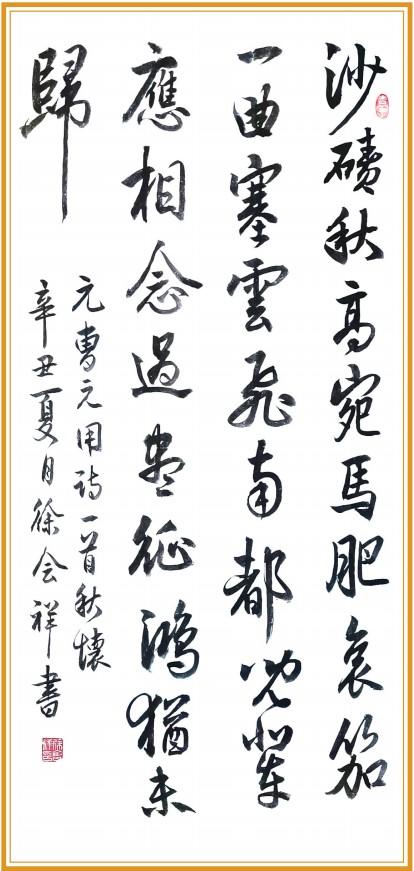 沙磧秋高宛馬肥哀笳
一曲塞雲飛南都兒輩
應相念過盡征鴻猶未
歸
元曹元用詩一首秋懷
辛丑夏月徐会祥書